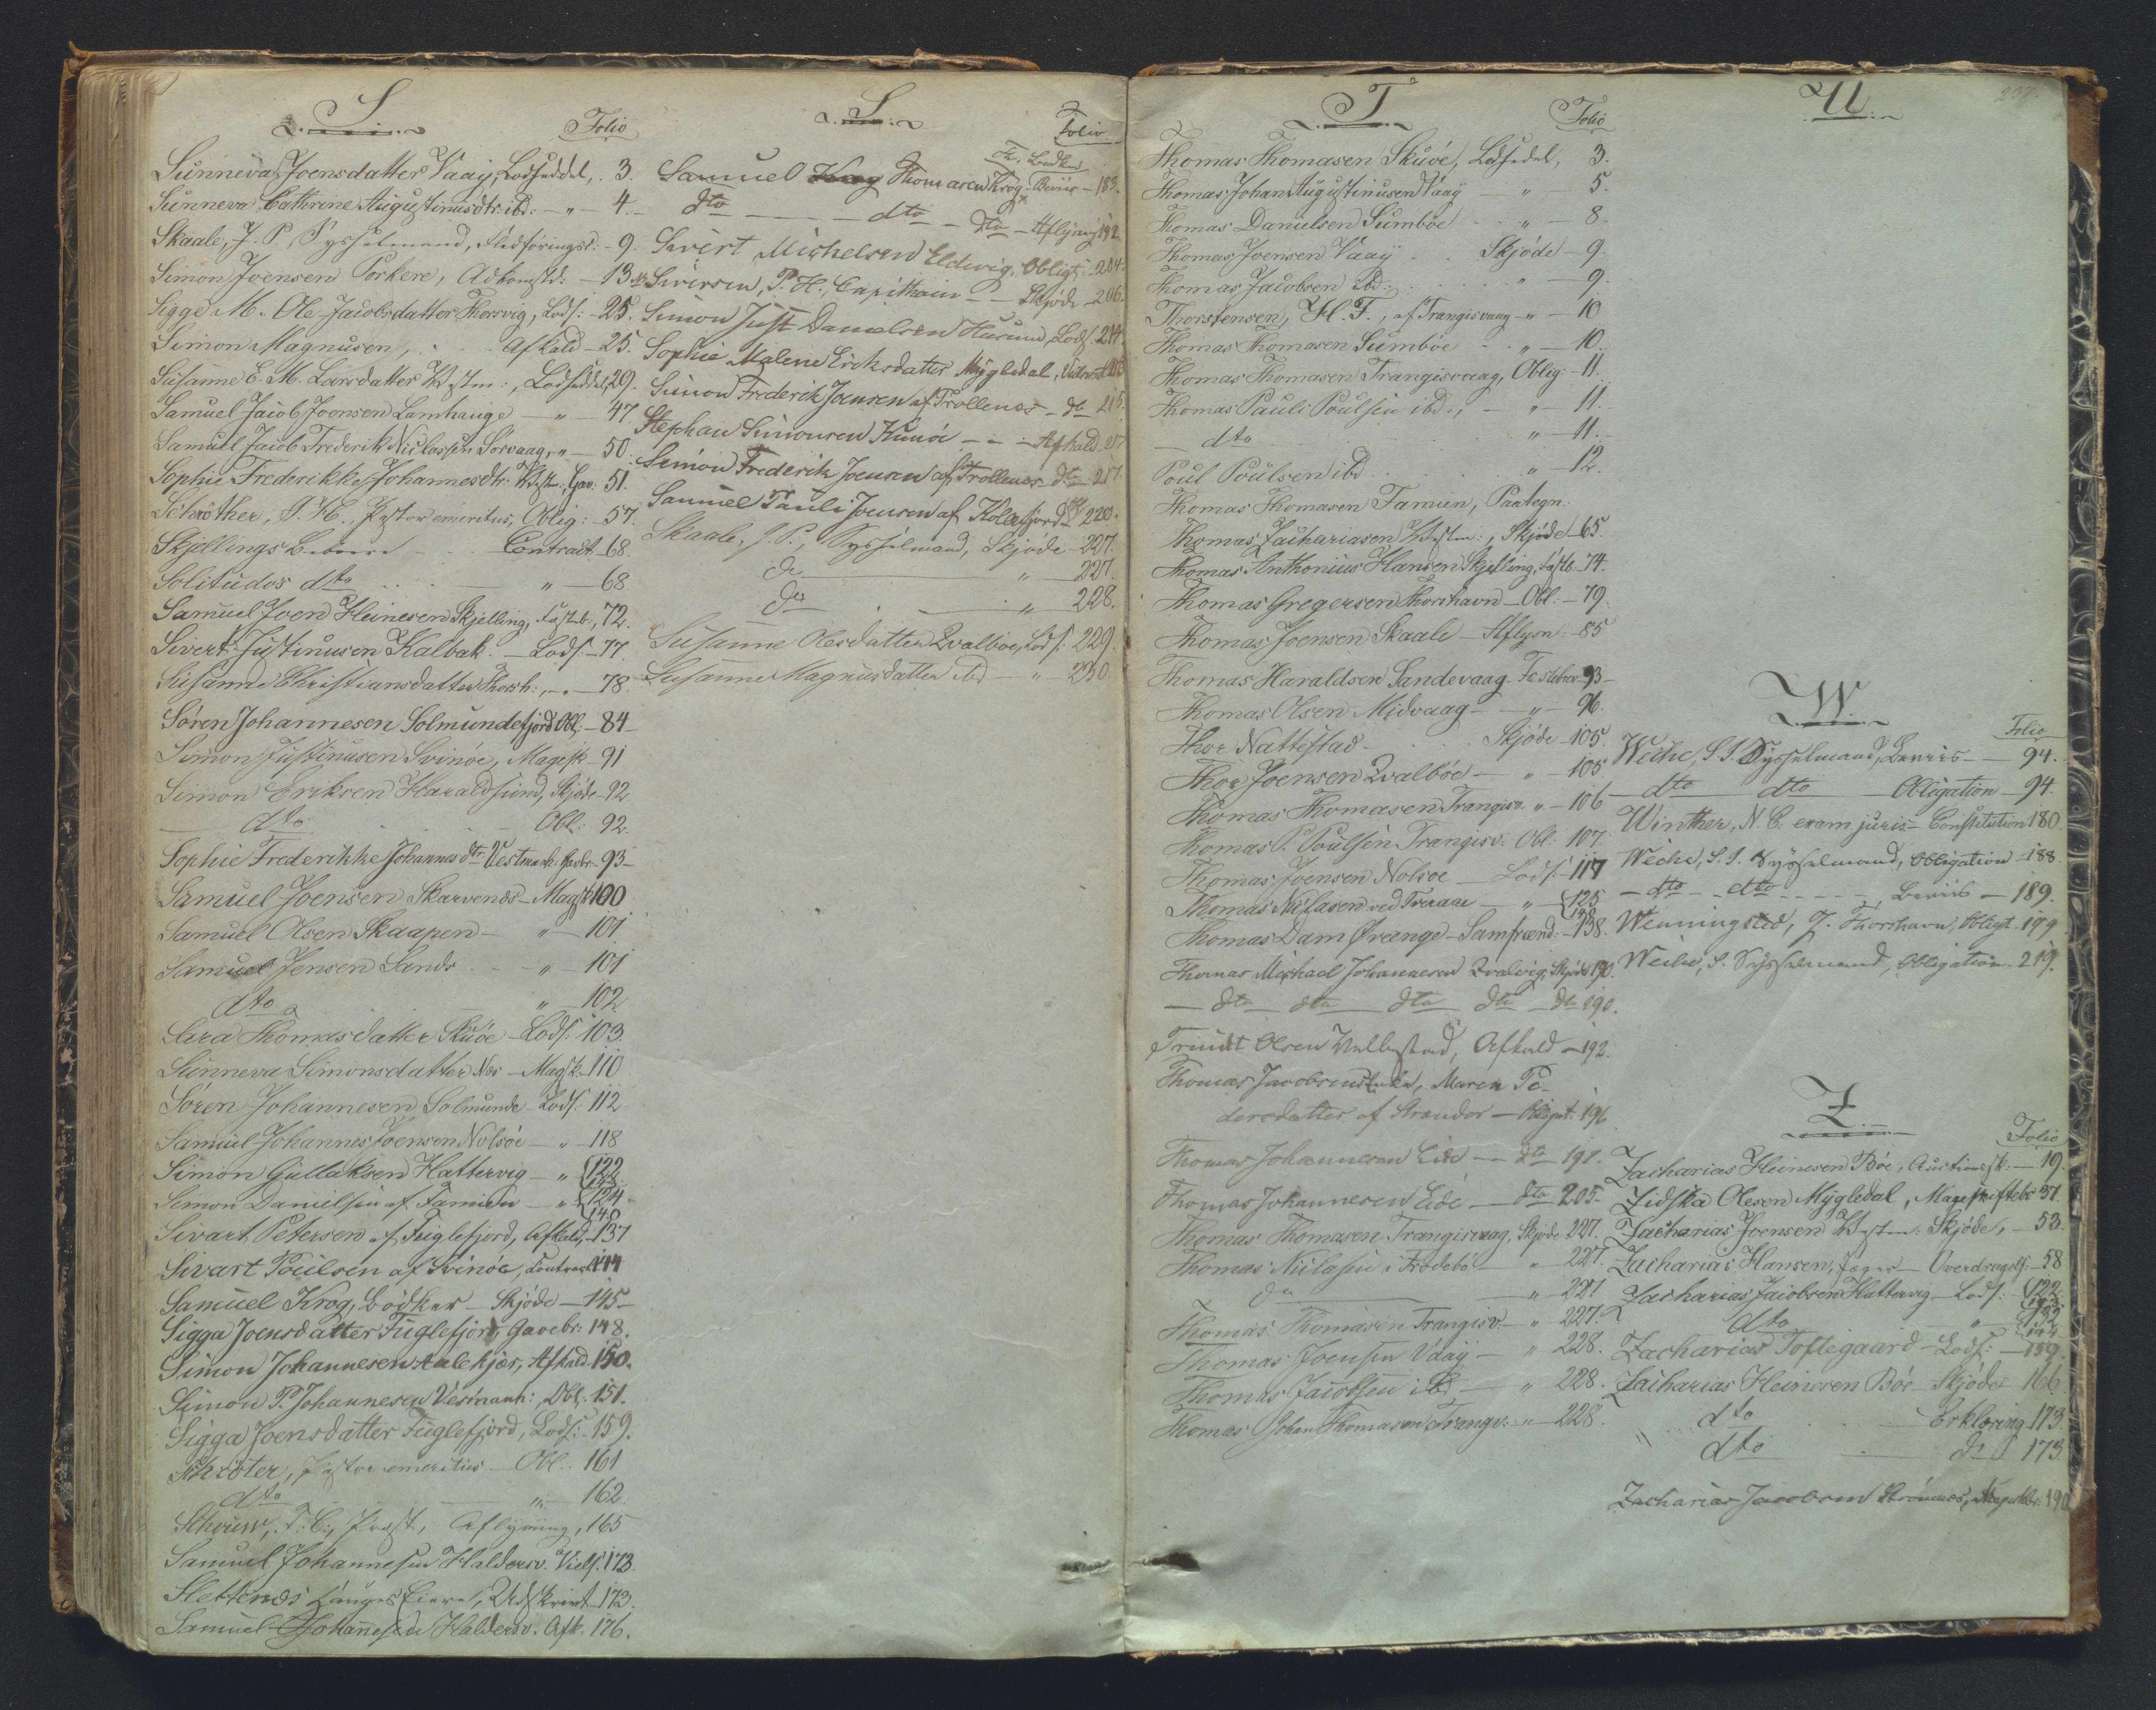 S.
Folio
Sunneva Joensdatter Vaag, Lodseddel, 3.
Sunneva Cathrine Augustinusdtr. ibd: - " - 4.
Skaale, J. P. Sysselmand, - 9.
Simon Joensen Porkere, Adkomstd: - 13
Sigge M. Ole Jacobsdatter Thorsvig, Lods: - 25.
Simon Magnusen, Afkald - 25.
Susanne E. M. Larsdatter Westm:, Lodseddel, 29.
Samuel Jacob Joensen Lamhauge - " - 47
Samuel Jacob Frederik Niclassen Sørvaag, " - 50.
Sophie Frederikke Johannesdtr: Westm: Gav: 51.
Schrøther, J. H., Pastor emeritus, Oblig: - 57.
Skjellings Beboere - Contract 68.
Solitudos dto " - 68
Samuel Joen Heinesen Skjelling, Fæsteb:, 72.
Sivert Justinusen Kalbak - Lods: - 77.
Susanne Christiansdatter Thorsh: - " - 78.
Søren Johannesen Solmundefjord Obl: - 84 -
Simon Justinusen Svinøe, Magesk - 91
Simon Eriksen Haraldsund, Skjøde - 92
dto Obl: 92.
Sophie Frederikke Johannesdtr. Vestmanh: Gavbr - 93 -
Samuel Joensen Skarvenæs - Magsk 100
Samuel Olsen Skaapen - " - 101
Samuel Jensen Sands " - 101
dto " - 102
Sara Thomasdatter Skuøe - Lods: 103.
Sunneva Simonsdatter Næs - Magsk - 110
Søren Johannesen Solmunde - Lods: 112
Samuel Johannes Joensen Nolsøe - " - 118
Simon Gullaksen Hattervig - " 122
Simon Danielsen af Famien - " 124
140
Sivart Petersen af Fuglefjord, Afkald, - 137
Sivart Poulsen af Svinøe, Contract 144
Samuel Krog, Bødker - Skjøde - 145 -
Sigga Joensdatter Fuglefjord, Gavebr: 148.
Simon Johannesen Aalekjær, Afkald 150.
Simon P. Johannesen Vesmanh:, Obl: 151.
Sigga Joensdatter Fuglefjord, Lods: - 159.
Schrøter, Pastor emeritus - Obl.: 161
dto " - 162
Schouw, F. C., Præst, Aflysning, 165
Samuel Johannesen Haldersv. Viels: 173.
Slettenæs Eiere, Udskrivt - 173.
Samuel Johannesen Haldersv. Afk. 176.
S.
Folio
Fr. Bødker
Samuel Thomasen Krog - Beviis - 183.
dto - dto - dto - Aflysning 192
Sivert Michelsen Eldevig, Obligt - 204.
Siversen, P. H., Capithain - Skjøde - 206.
Simon Just Danielsen Husund, Lods: 214.
Sophie Malene Eriksdatter Mygledal, 215
Simon Frederik Joensen af Trollenæs - do 215.
Stephan Simonsen Kunøe - - - Afkald 217
Simon Frederik Joensen af Trollenæs - dto - 217.
Samuel Pauli Joensen af Kollefjord 220.
Skaale, J. P., Sysselmand, Skjøde - 227.
do " 227.
do " 228.
Susanne Olesdatter Qvalboe, Lods: 229.
Susanne Magnusdatter ibd - " - 230.
T.
Folio
Thomas Thomasen Skuøe, Lodsedel, 3.
Thomas Johan Augustinusen Vaag - " - 5.
Thomas Danielsen Sumbøe - " - 8.
Thomas Joensen Vaag . . Skjøde - 9.
Thomas Jacobsen ibd: " - 9.
Thorstensen, H. F., af Trangisvaag - " - 10
Thomas Thomasen Sumbøe - " - 10.
Thomas Thomasen Trangisvaag, Oblig - 11.
Thomas Pauli Poulsen ibd:, - " - 11.
dto " - 11.
Poul Poulsen ibd. " - 12.
Thomas Thomasen Famien, Paategn:
Thomas Zachariasen Westm:, Skjøde - 65.
Thomas Anthonius Hansen Skjelling, Fæsteb - 74.
Thomas Gregersen Thorshavn - Obl: - 79.
Thomas Joensen Skaale - Aflysn: - 85
Thomas Haraldsen Sandevaag Festebrev - 93 -
Thomas Olsen Midvaag - " - 96.
Thor Nattestad - Skjøde - 105.
Thor Joensen Qvalbøe - " - 105
Thomas Thomasen Trangisv. " - 106
Thomas P. Poulsen Trangisv: Obl: 107
Thomas Joensen Nolsøe - Lods: - 117
Thomas Niclasen ved Treraae - " - 125
138
Thomas Dam Øreenge - Samfrænd: - 138.
Thomas Michael Johannesen Qvalvig, Skjøde 190.
- dto dto dto dto - do 190.
Truidt Olsen Vellestad, Afkald - 192.
Thomas Jacobsens Enke, Maren Pe-
dersdatter af Strender - Obligat: 196
Thomas Johannesen Eide - dto 198.
Thomas Johannesen Eide - dto 205.
Thomas Thomasen Trangisvaag, Skjøde 227.
Thomas Niclasen i Frodebø " 227.
do " 227
Thomas Thomasen Trangisv. - " 227.
Thomas Joensen Vaag - " 228.
Thomas Jacobsen ibd - " 228.
Thomas Johan Thomasen Trangv: - " - 228.
U.
237.
W.
Folio
Weihe, S. J. Sysselmand, Beviis - 94.
dto dto Obligation - 94.
Winther, N. C. exam juris - Constitution 180.
Weihe, S. J. Sysselmand, Obligation - 188.
- dto - dto - Beviis - 189.
Wenningsted, J. Thorshavn, Obligt. 199
Weihe, S. Sysselmand, Obligation - 219.
Z.
Folio
Zacharias Heinesen Bøe, Auctionssk: - 19.
Zidska Olesen Mygledal, Mageskiftebr 37.
Zacharias Joensen Westm: Skjøde, - 53.
Zacharias Hansen, Jæger - Overdragels: - 58
Zacharias Jacobsen Hattervig - Lods: - 122
dto "
Zacharias Toftegaard - Lods: - 159.
Zacharias Heinesen Bøe - Skjøde 166
dto - Erklæring 173.
dto - do 173
Zacharias Jacobsen Strømnæs, Magskbr: 190